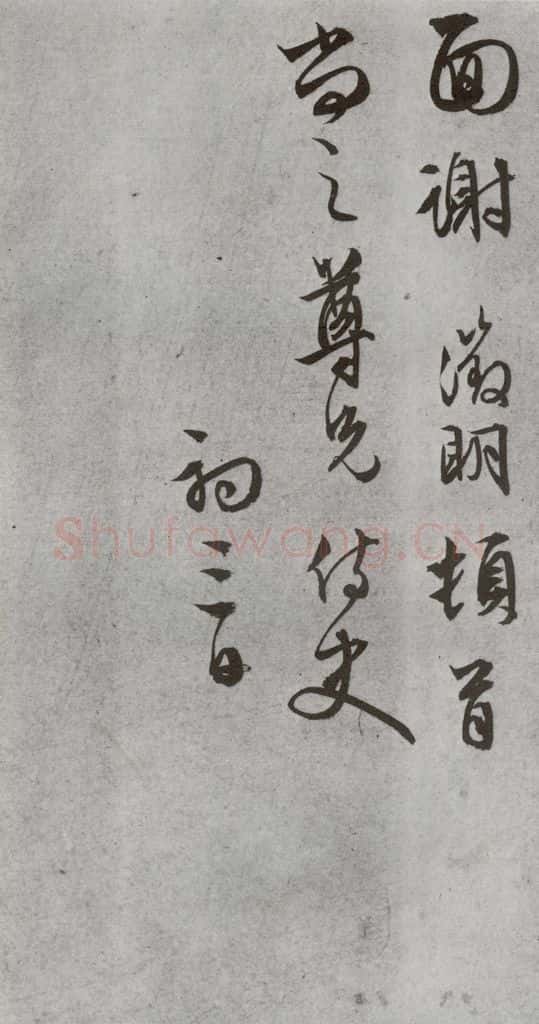 面谢 徵明顿首
尚之尊兄 侍史
初三日
Shufawang.CN